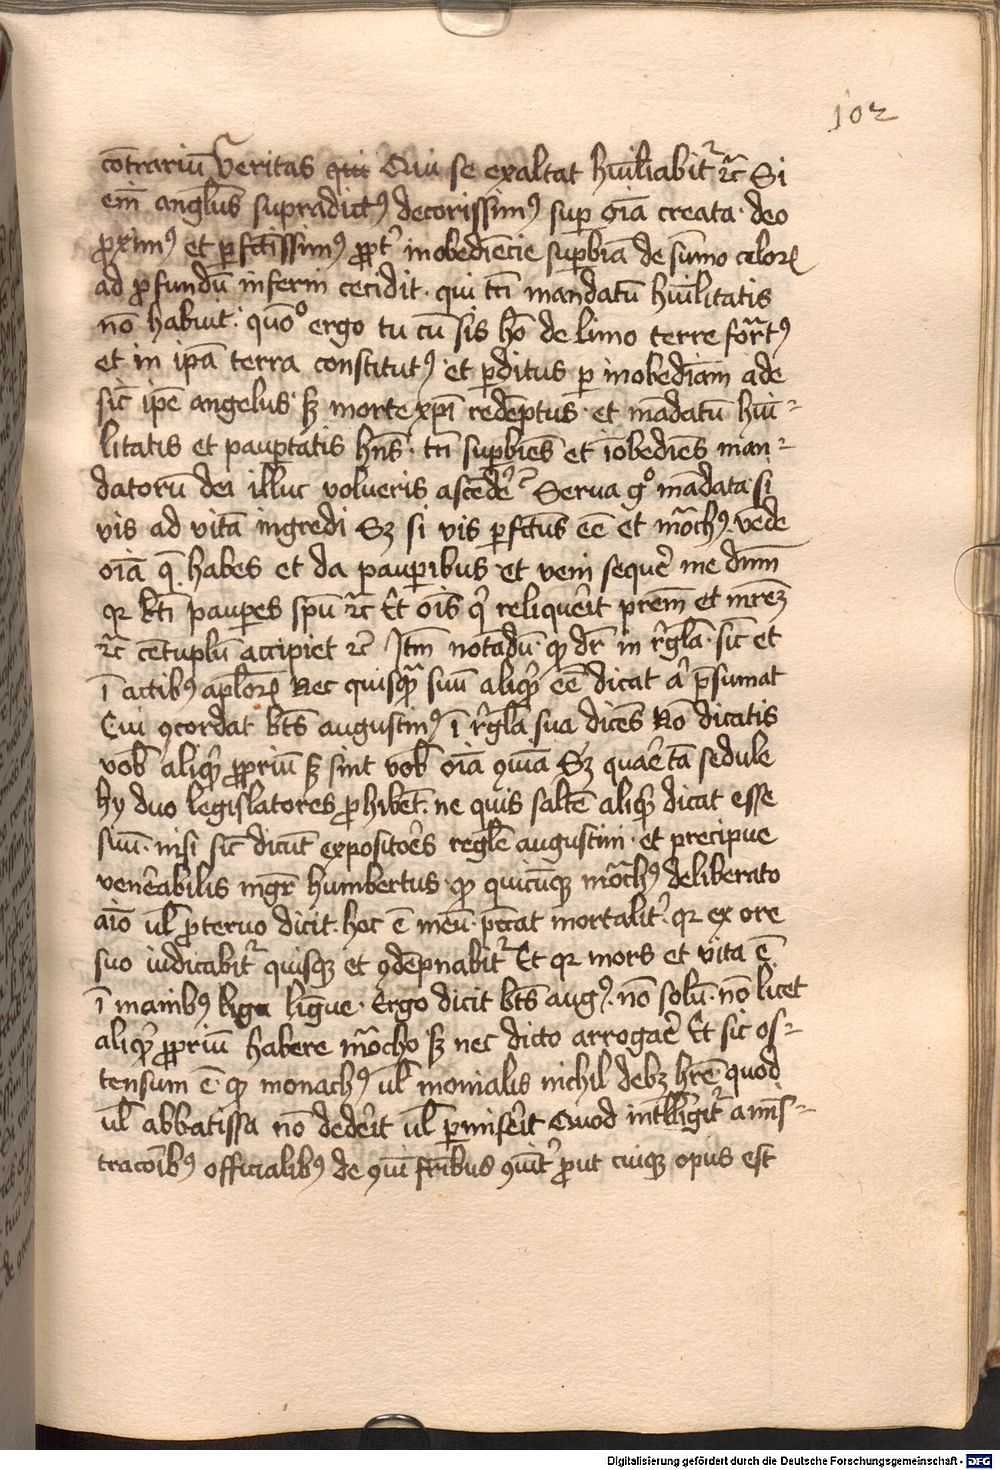 102
cōtrariū Veritas qui Qui se exaltat hūiliabit᷑ ⁊c̄ Si
em̄ angl̄us supradict⁹ decorissim⁹ sup oīa creata · deo
ꝓxim⁹ et ꝑfc̄tissim⁹ ꝓpt᷑ inobediēcie supbiā de sūmo celoꝝ
ad ꝓfundū inferni cecidit · qui tn̄ mandatū hūilitatis
nō habuit · quōᵒ ergo tu cū sis hō de limo terre for̄t⁹
et in ipā terra constitut⁹ · et ꝑditus ꝑ inobediām ade
sic̄ ipē angelus · sꝫ morte xp̄i redēptus · et mādatū hūi-
litatis et pauptatis hn̄s · tn̄ supbiēs et īobediēs man-
datorū dei illuc volueris ascēde᷑ ? Serua gᵒ mādata si
vis ad vitā ingredi Sꝫ si vis ꝑfc̄tus eē et mo̅ch⁹ · vēde
oīa q̄ habes et da paupibus · et veni seque᷑ me dn̄m
qꝛ bt̄i paupes spū ⁊c̄ Et oīs qͥ reliquēit prēm et mrēꝫ
⁊c̄ cētuplū accipiet ⁊c̄ Itm̄ notādū · qꝫ dr̄ in rͤgl̄a · sic̄ et
ī actibꝰ apl̄oꝝ Nec quisqᷓ suū aliqͥd eē dicat aͭ p̄sumat
Cui ꝯcordat bt̄s augustin⁹ ī rͤgl̄a sua dicēs Nō dicatis
vob̄ aliqͥd ꝓpriū sꝫ sint vob̄ oīa ꝯūia Sꝫ quāe tā sedule
hy duo legislatores ꝓhibēt · ne quis saltē aliqͥd dicat esse
suū · nisi sic̄ dicūt expositoēs regl̄e augustini · et precipue
venēabilis mgr̄ humbertus · qꝫ quicūqꝫ mo̅ch⁹ deliberato
aīo vl̄ ꝓteruo dicit · hoc ē meū · pēcat mortalit᷑ · qꝛ ex ore
suo iudicabit᷑ quisqꝫ et ꝯdēpnabit᷑ Et qꝛ mors et vita ē
ī manibꝰ liga līgue · Ergo dicit bt̄s aug⁹ · nō solū · nō licet
aliqͥd ꝓpriū habere mo̅cho sꝫ nec dicto arrogāe Et sic os-
tensum ē · qꝫ monach⁹ vl̄ monialis nichil debꝫ hrē · quod
vl̄ abbatissa nō dedēit vl̄ ꝑmisēit Quod intellͥgit᷑ amīs-
tracōibꝰ officialibꝰ de ꝯūi fr̄ibus ꝯūit᷑ ꝓut cuiqꝫ opus est
Digitalisierung gefördert durch die Deutsche Forschungsgemeinschaft - DFG